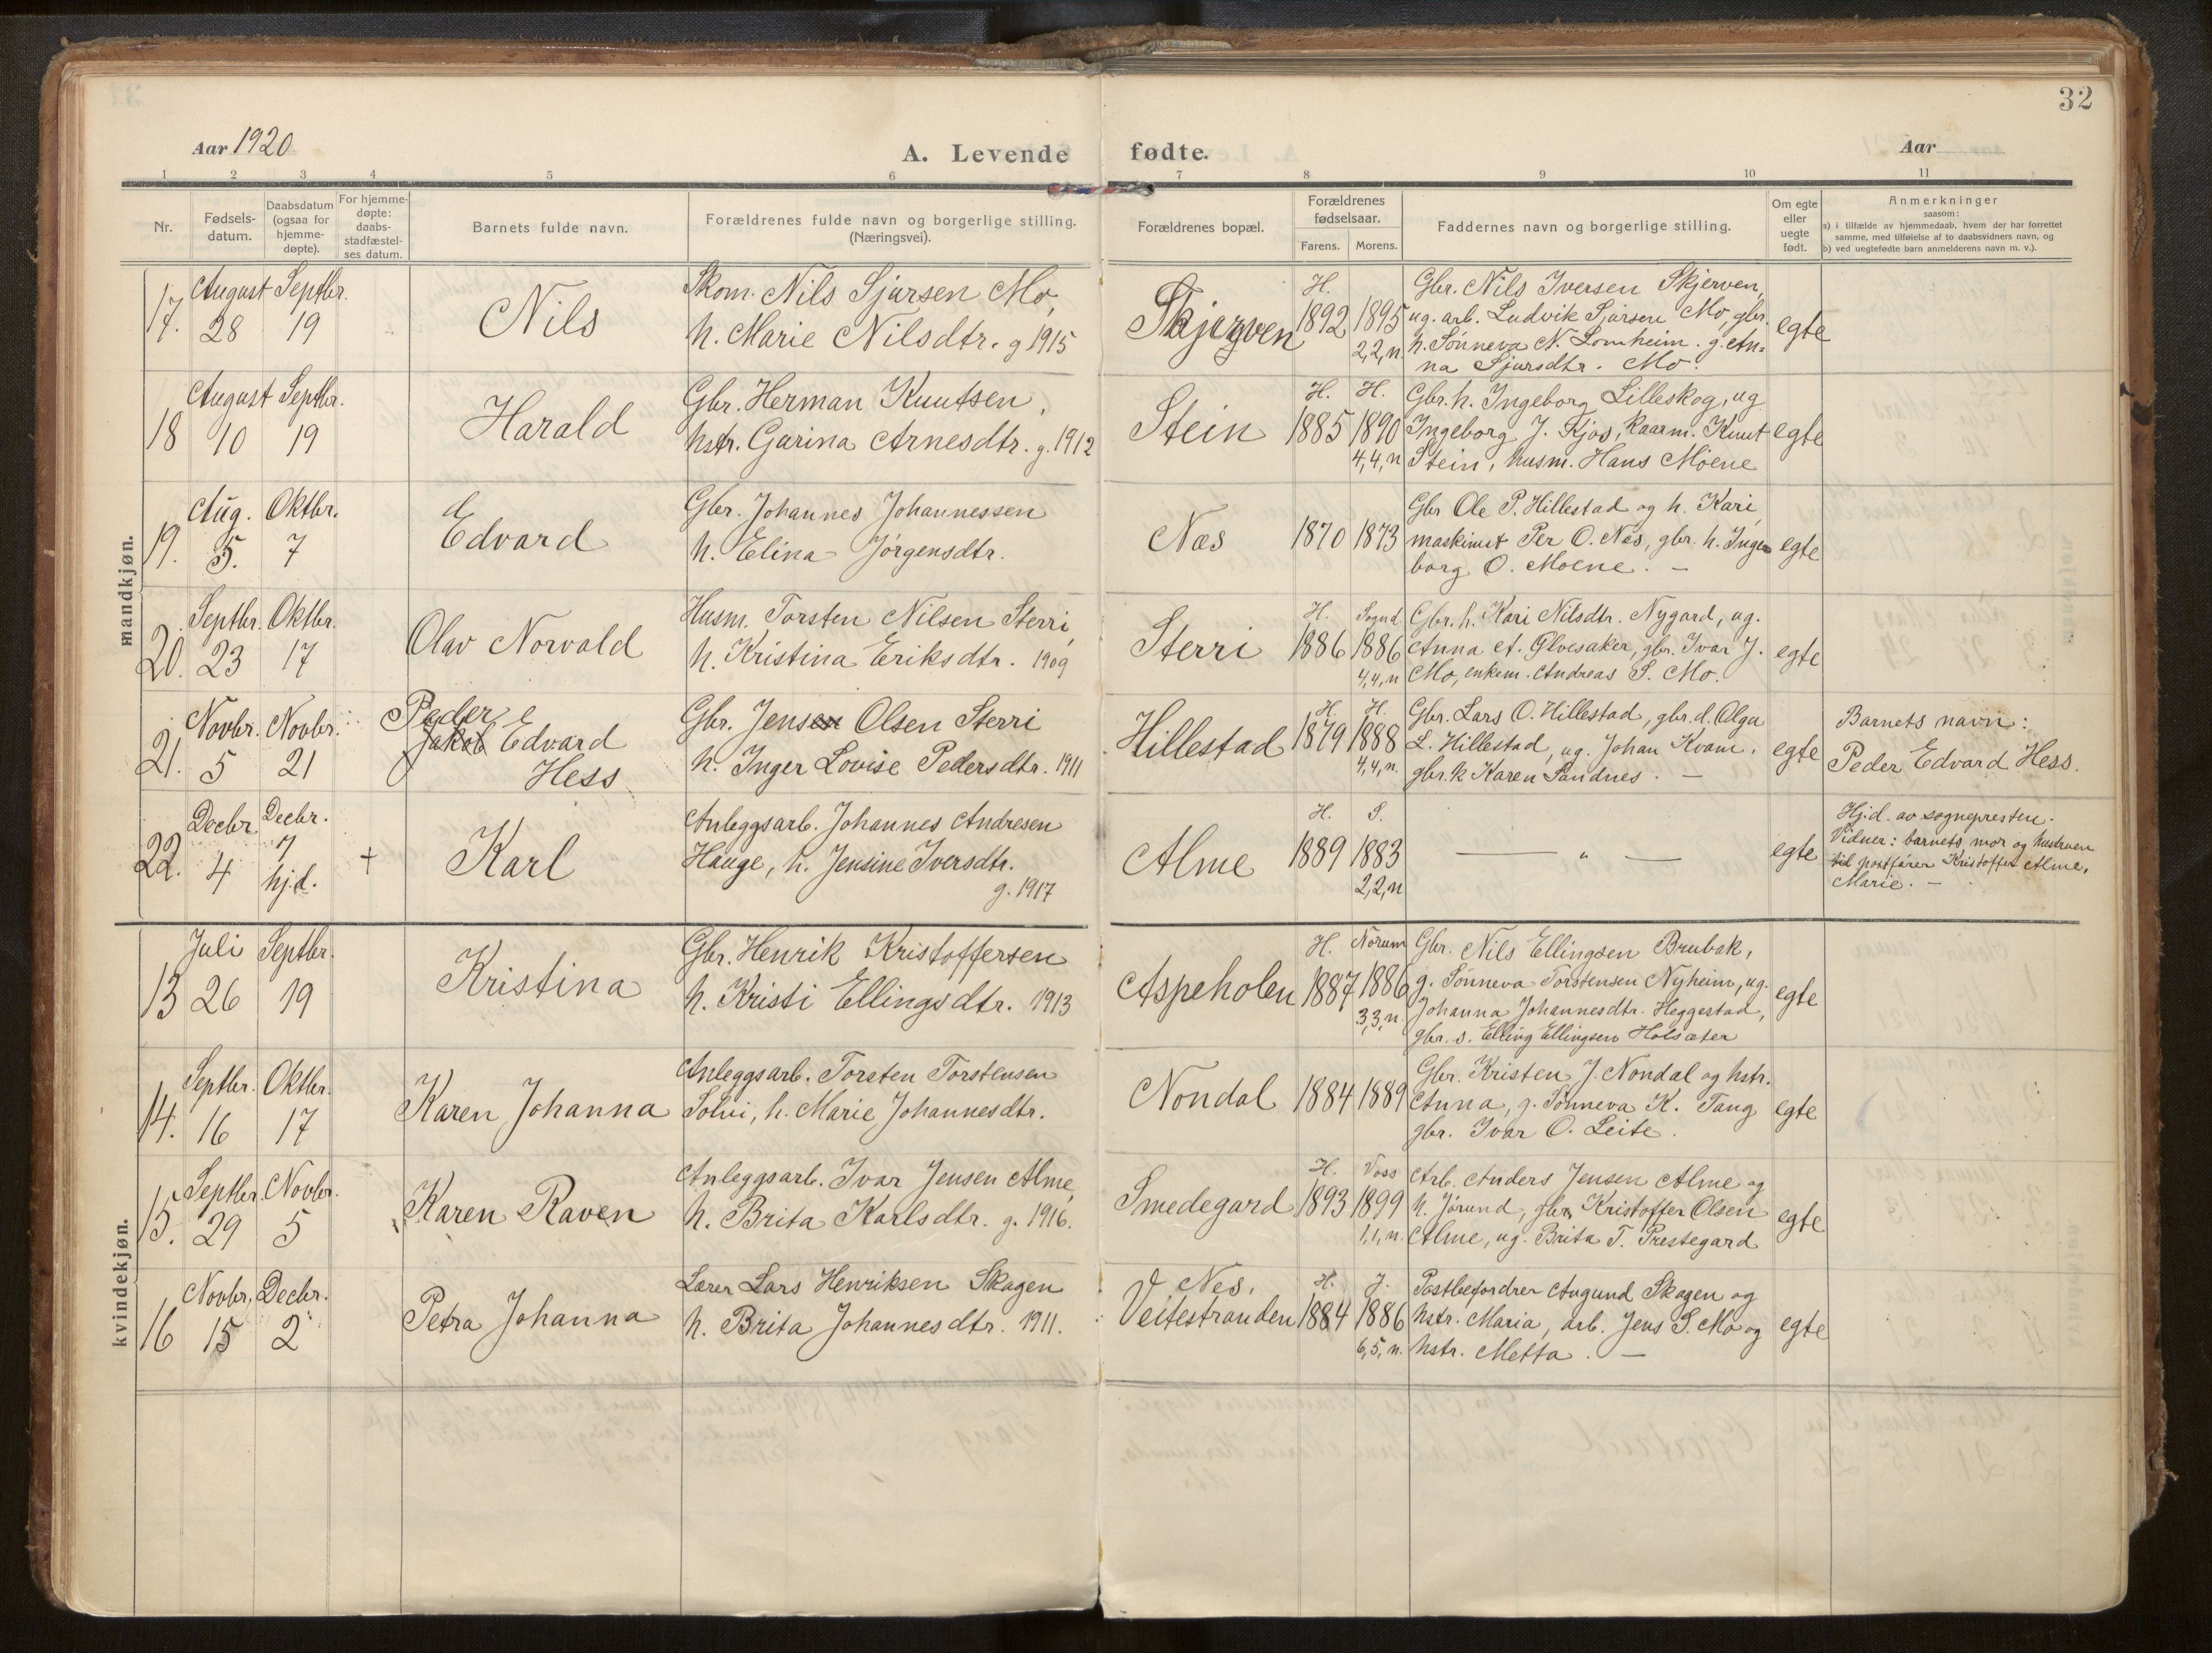 32
Aar 1920
A. Levende fødte.
Aar
1 2 3 4 5 6 7 8 9 10 11
Nr.
Fødsels-
datum.
Daabsdatum
(ogsaa for
hjemme-
døpte).
For hjemme-
døpte:
daabs-
stadfæstel-
ses datum.
Barnets fulde navn.
Forældrenes fulde navn og borgerlige stilling.
(Næringsvei).
Forældrenes bopæl.
Forældrenes
fødselsaar.
Farens. Morens.
Faddernes navn og borgerlige stilling.
Om egte
eller
uegte
født.
Anmerkninger
saasom:
a) i tilfælde av hjemmedaab, hvem der har forrettet
samme, med tilføielse af to daabsvidners navn, og
b) ved uegtefødte barn anmelderens navn m. v.).
mandkjøn.
17.
August
28
Septbr.
19
Nils
Skom. Nils Sjursen Mo,
h. Marie Nilsdtr. g 1915
Skjerven
H.
1892
1895
2,2,n.
Gbr. Nils Iversen Skjerven,
ug. arb. Ludvik Sjursen Mo, gbr.
h. Sønneva N. Lomheim. g. An=
na Sjursdtr. Mo.
egte
18
August
10
Septbr.
19
Harald
Gbr. Herman Knutsen,
hstr. Garina Arnesdtr. g. 1912
Stein
H. H.
1885 1890
4,4,n
Gbr. h. Ingeborg Lilleskog, ug
Ingeborg J. Kjos, kaarm. Knut
Stein, husm. Hans Moene
egte
19.
Aug.
5.
Oktbr.
7
d
Edvard
Gbr. Johannes Johannessen
h. Elina Jørgensdtr.
Næs
1870 1873
Gbr Ole P. Hillestad og h. Kari,
maskinist Per O. Nes, gbr. h. Inge=
borg O. Moene. —
egte
20.
Septbr.
23
Oktbr.
17
Olav Norvald
Husm. Torsten Nilsen Sterri,
h. Kristina Eriksdtr. 1909
Sterri
H. Sognd.
1886 1886
4,4,n
Gbr. h. Kari Nilsdtr. Nygard, ug.
Anna A. Glvesaker, gbr. Ivar J.
Mo, enkem. Andreas S. Mo.
egte
21.
Novbr.
5
Novbr.
21
Peder
Jakob Edvard
Hess
Gbr. Jensen Olsen Sterri
h. Inger Lovise Pedersdtr. 1911
Hillestad
H. H.
1879 1888
4,4,n.
Gbr. Lars O. Hillestad, gbr. d. Olga
L. Hillestad, ug. Johan Kvam,
gbr. k Karen Sandnes. —
egte
Barnets navn:
Peder Edvard Hess.
22.
Decbr.
4
Decbr.
7
hj.d.
+
Karl
Anleggsarb. Johannes Andresen
Hauge, h. Jensine Iversdtr.
g. 1917
Alme
H. S.
1889 1883
2,2,n
— " —
egte
Hj.d. av sognepresten.
Vidner: barnets mor og hustruen
til postfører Kristoffer Alme,
Marie. —
kvindekjøn.
13
Juli
26
Septbr.
19
Kristina
Gbr. Henrik Kristoffersen
h. Kristi Ellingsdtr. 1913
Aspeholen
H. Norum
1887 1886
3,3,n.
Gbr. Nils Ellingsen Brubak,
g. Sønneva Torstensen Nyheim, ug.
Johanna Johannesdtr. Heggestad,
gbr. s. Elling Ellingsen Holsæter
egte
14.
Septbr.
16
Oktbr.
17
Karen Johanna
Anleggsarb. Torsten Torstensen
Solvi, h. Marie Johannesdtr.
Nondal
1884 1889
Gbr. Kristen J. Nondal og hstr.
Anna, g. Sønneva K. Tang
gbr. Ivar O. Leite.
egte
15.
Septbr.
29
Novbr.
5
Karen Raven
Anleggsarb. Ivar Jensen Alme,
h. Brita Karlsdtr. g. 1916.
Smedegard
H. Voss
1893 1899
1,1,n.
Arb. Anders Jensen Alme og
h. Jørund, gbr. Kristoffer Olsen
Alme, ug. Brita T. Prestegard
egte
16
Novbr.
15
Decbr.
2
Petra Johanna
Lærer Lars Henriksen Skagen
h. Brita Johannesdtr. 1911.
V Nes.
Veitestranden
H. J.
1884 1886
6,5,n.
Postbefordrer Augund Skagen og
hstr. Maria, arb. Jens S. Mo og
hstr. Metta. —
egte